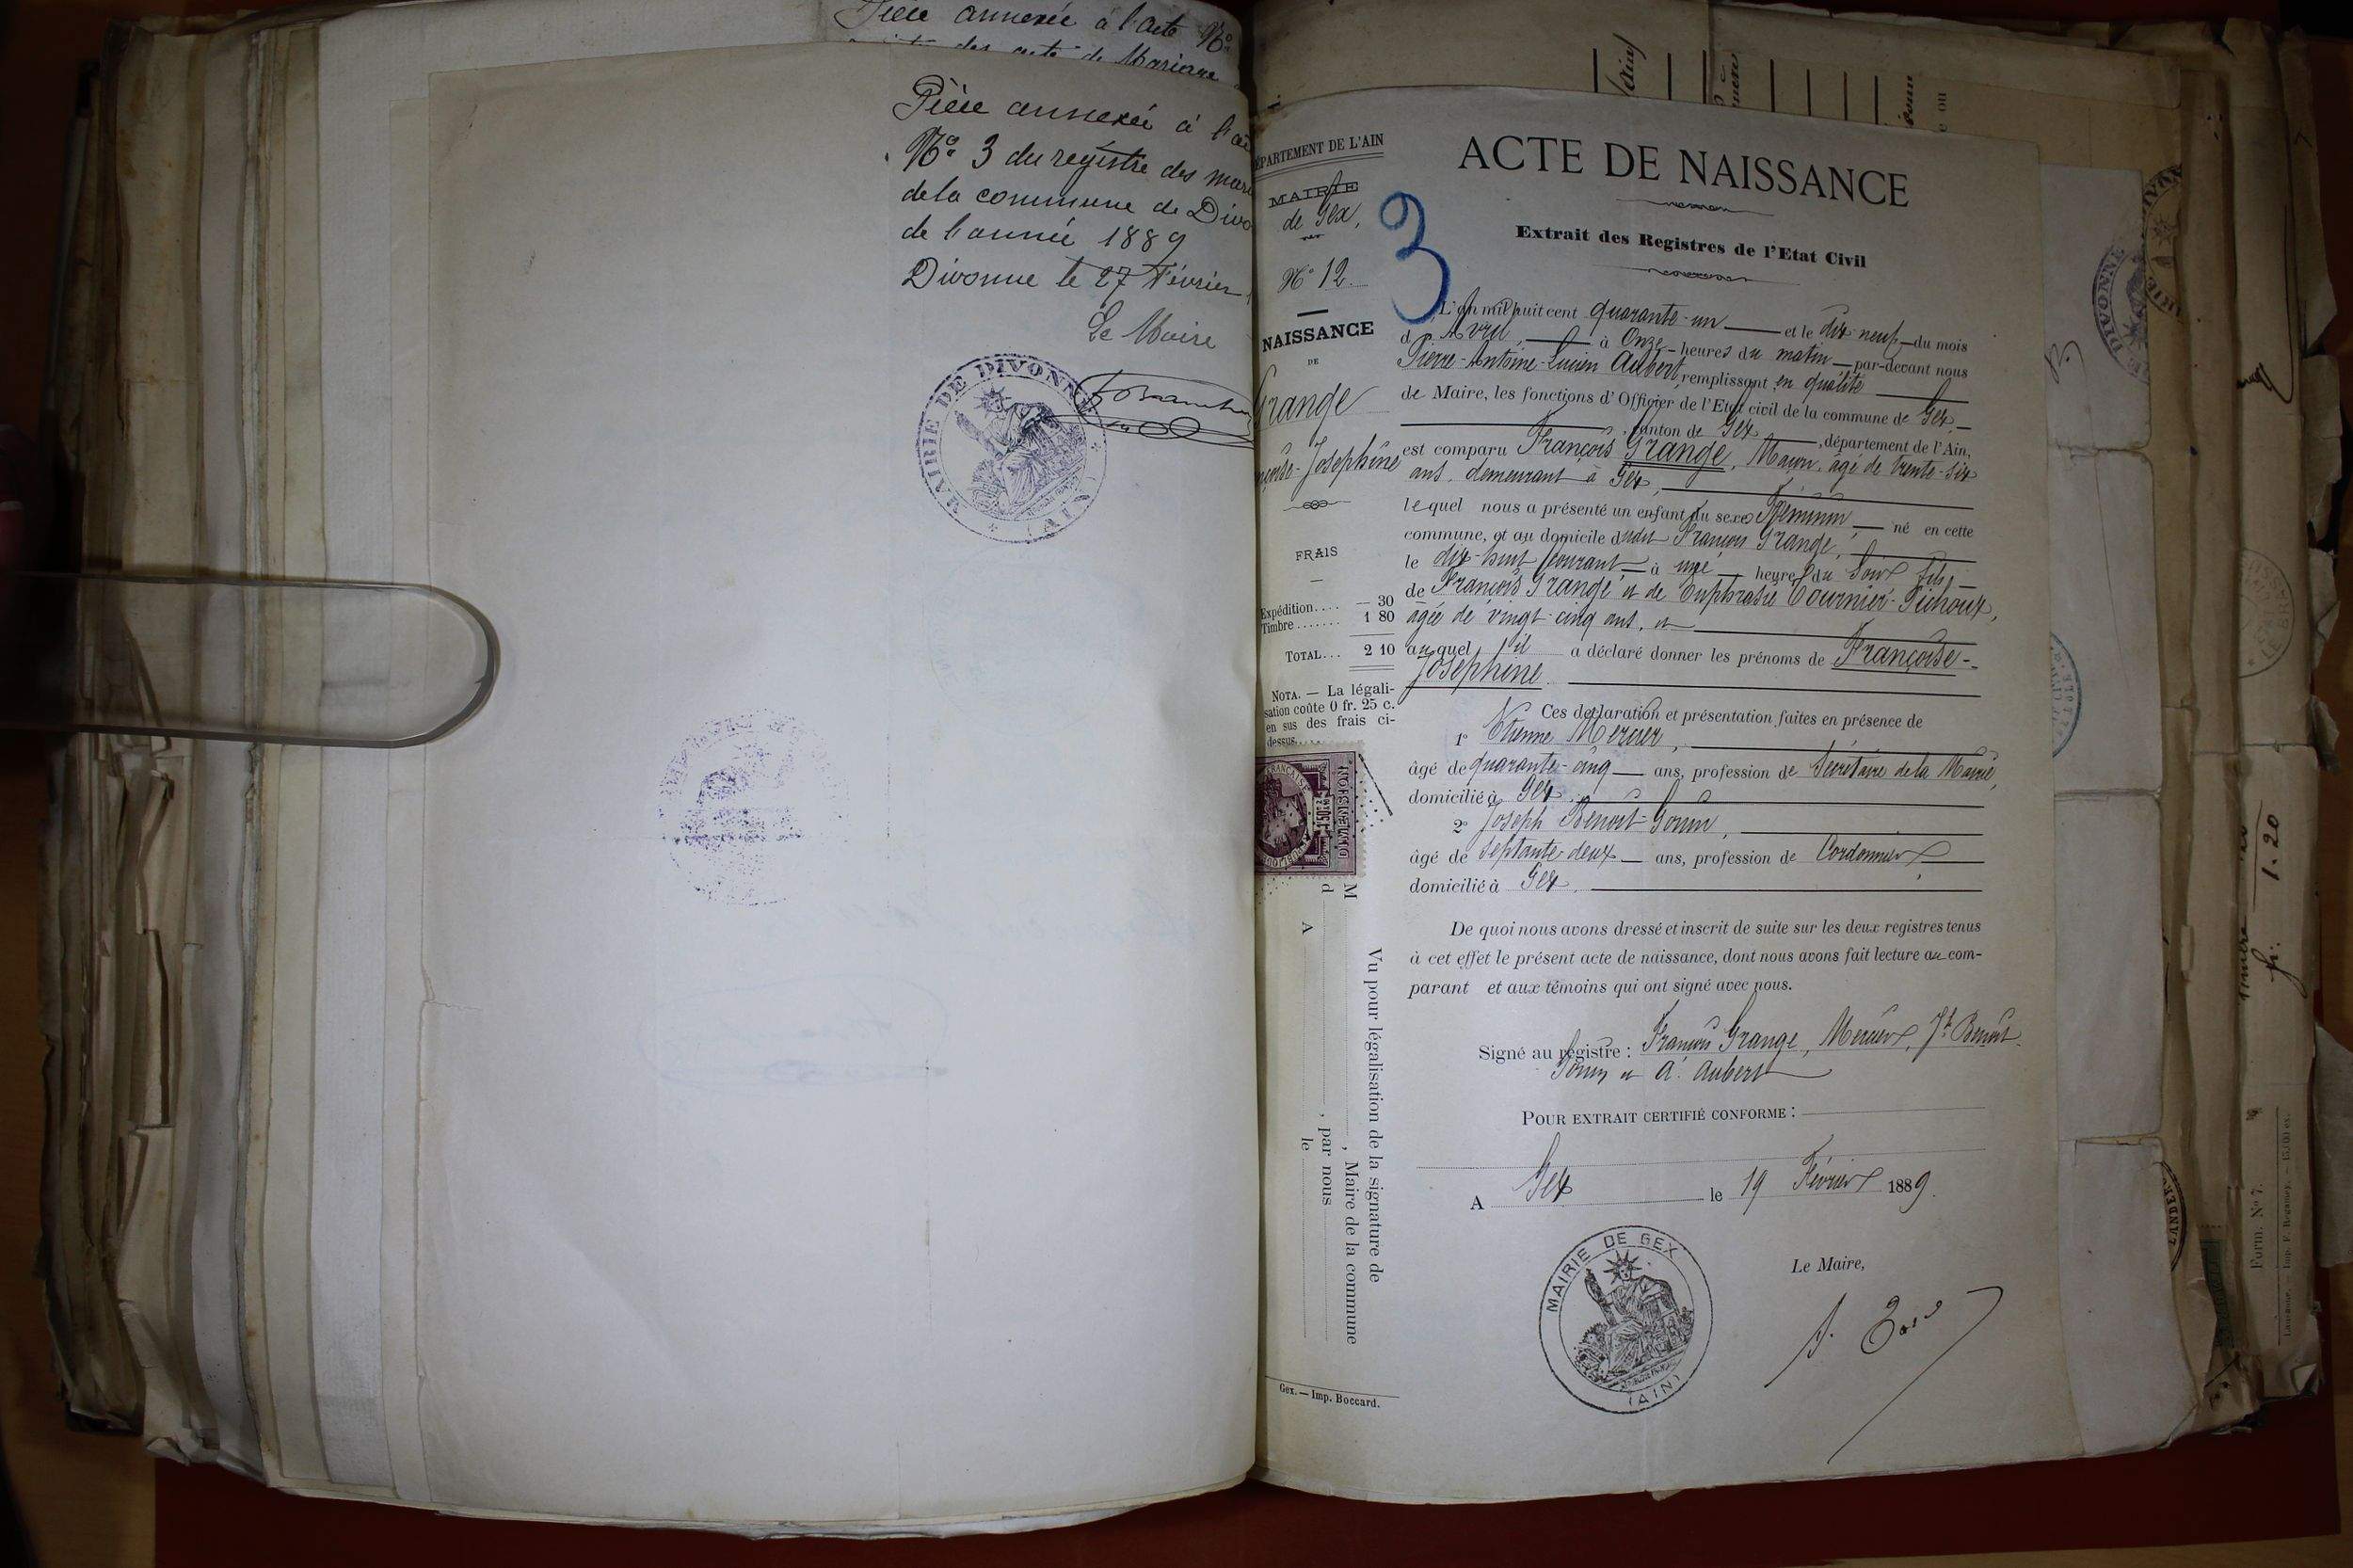 Pièce annexée à l'acte No
des acte de Mariage
Pièce annexée à l'ac
No 3 du registre des mari
de la commune de Divo
de l'année 1889
Divonne le 27 Février
Le Maire
MAIRIE DE DIVONNE
(AIN)
DÉPARTEMENT DE L'AIN
MAIRIE
de Gex,
No 12.
NAISSANCE
DE
Grange
nçoise-Joséphine
FRAIS
Expédition.... — 30
Timbre....... 1 80
TOTAL... 2 10
NOTA. — La légali-
sation coûte 0 fr. 25 c.
en sus des frais ci-
dessus.
DIMENSION
M
d
A
Vu pour légalisation de la signature de
, Maire de la commune
, par nous
le
Gex. — Imp. Boccard.
3
ACTE DE NAISSANCE
Extrait des Registres de l'Etat Civil
L'an mil huit cent quarante-un et le dix-neuf du mois
d'Avril, à Onze heures du matin par-devant nous
Pierre-Antoine-Lucien Aubert, remplissant en qualité
de Maire, les fonctions d'Officier de l'Etat civil de la commune de Gex
, canton de Gex, département de l'Ain,
est comparu François Grange, Maçon, âgé de trente-six
ans, demeurant à Gex,
lequel nous a présenté un enfant du sexe Féminin né en cette
commune, et au domicile dudit François Grange,
le dix-huit courant à une heure du Soir, fille
de François Grange et de Euphrasie Tournier-Pichoux,
âgée de vingt-cinq ans, et
auquel il a déclaré donner les prénoms de Françoise-
Joséphine
Ces déclaration et présentation faites en présence de
1° Etienne Mercier,
âgé de quarante-cinq ans, profession de Secrétaire de la Mairie,
domicilié à Gex,
2° Joseph Benoit-Gonin,
âgé de septante-deux ans, profession de Cordonnier,
domicilié à Gex.
De quoi nous avons dressé et inscrit de suite sur les deux registres tenus
à cet effet le présent acte de naissance, dont nous avons fait lecture au com-
parant et aux témoins qui ont signé avec nous.
Signé au registre : François Grange, Mercier, Jh Benoit
Gonin et A. Aubert
POUR EXTRAIT CERTIFIÉ CONFORME :
A Gex le 19 Février 1889.
Le Maire,
MAIRIE DE GEX
(AIN)
DIVONNE
fr. 1.20
Form. No 7.